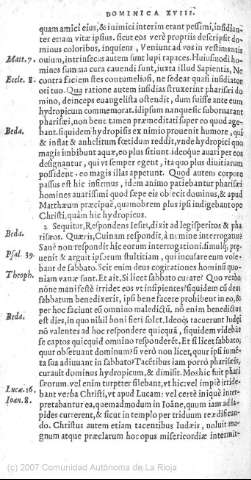 DOMINICA XVIII.
quam amici eius, & inimici interim erant pessimi, insidian-
tes etiam vitæ ipsius. sicut eos verè propriis describit do-
minus coloribus, inquiens, Veniunt ad vos in vestimentis
Matt. 7. ouium, intrinsecus autem sunt lupi rapaces. Huiusmodi ho-
mines summa cura cauendi sunt, iuxta illud Sapientis, Ne
Eccle. 8. contra faciem stes contumeliosi, ne sedeat quasi insidiator
ori tuo. Qua ratione autem insidias struxerint pharisæi do-
mino, deinceps euangelista ostendit, dum fuisse ante eum
hydropicum commemorat.
pharisæi, non bene tamen præmeditati super eo quod age-
Beda. bant. siquidem hydropis ex nimio prouenit humore, qui
& instat & anhelitum fœtidum reddit, unde hydropici quo
magis imbibunt aquæ, eo plus sitiunt. ideoque auari per eos
designantur, qui vt semper egent, ita quo plus diuitiarum
possident, eo magis illas appetunt. Quod autem corpore
passus est hic infirmus, idem animo patiebantur pharisæi
homines auarissimi quod sæpe eis obiecit dominus, & apud
Matthæum præcipuè, quamobrem plus ipsi indigebant ope
Christi, quàm hic hydropicus.
2 Sequitur, Respondens Iesus, dixit ad legisperitos & pha
Beda. risæos. Quæris, Cui nam respondit, à nemine interrogatus?
Sanè non respondit hic eorum interrogationi. simul
Psal. 39. uenit & arguit ipsorum stultitiam, qui
lent de sabbato. Scit enim deus cogitationes hominū quo-
Theoph. niam vanæ sunt. Et ait, Si licet sabbato curare? Quo verbo
nōne manifestè irridet eos vt insipientes? siquidem
sabbatum benedixerit, ipsi bene facere prohibent in eo, &
per hoc faciunt eū omnino maledictū, nō enim benedictus
Beda. est dies, in quo nihil boni fieri solet. Ideoq; tacuerunt
nō valentes ad hoc respondere quicquā, siquidem videbāt
se captos quicquid omnino responderēt. Et si licet sabbato,
quur obseruant dominum? si verò non licet, quur ipsi iumē-
ta sua adiuuant in sabbato? Tacētibus iam porrò pharisæis,
curauit dominus hydropicum, & dimisit. Mos hic fuit phari
sæorum. vel enim turpiter silebant, vt hîc: vel impiè irride-
Lucæ.16. bant verba Christi, vt apud Lucam: vel certè iniquè inter-
Ioan. 8. pretabantur ea, quemadmodum in Ioāne, quum iam ad la-
pides currerent, & sicut in templo per triduum reædifican-
do. Christus autem etiam tacentibus Iudæis, noluit mo-
gnum atque præclarum hoc opus misericordiæ intermit-
(c) 2007 Comunidad Autónoma de La Rioja